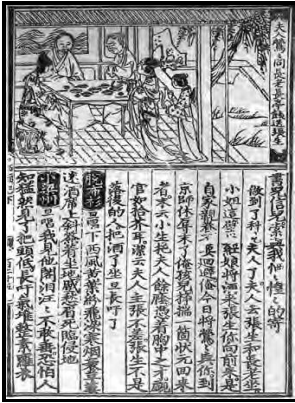 夫人鶯同長老長亭餞送張生
做到了科夫人了夫人云張生和長老坐
小姐這壁坐紅娘將酒來張生你向前來是
自家親眷不要迴避俺今日將鶯鶯與你到
京師休辱末了俺孩兒掙揣一箇狀元回來
者末云小生托夫人餘蔭憑着胸中之才覷
官如拾芥耳潔云夫人主張不差張生不是
落後的人把酒了坐旦長吁了
脫布衫 旦唱下西風黃葉紛飛染寒烟衰草萋
迷酒席上斜簽着坐地蹙愁眉死臨侵地
小梁州 旦唱我見他閣泪汪汪不敢垂恐怕人
知猛然見了把頭低長吁氣推整素羅衣